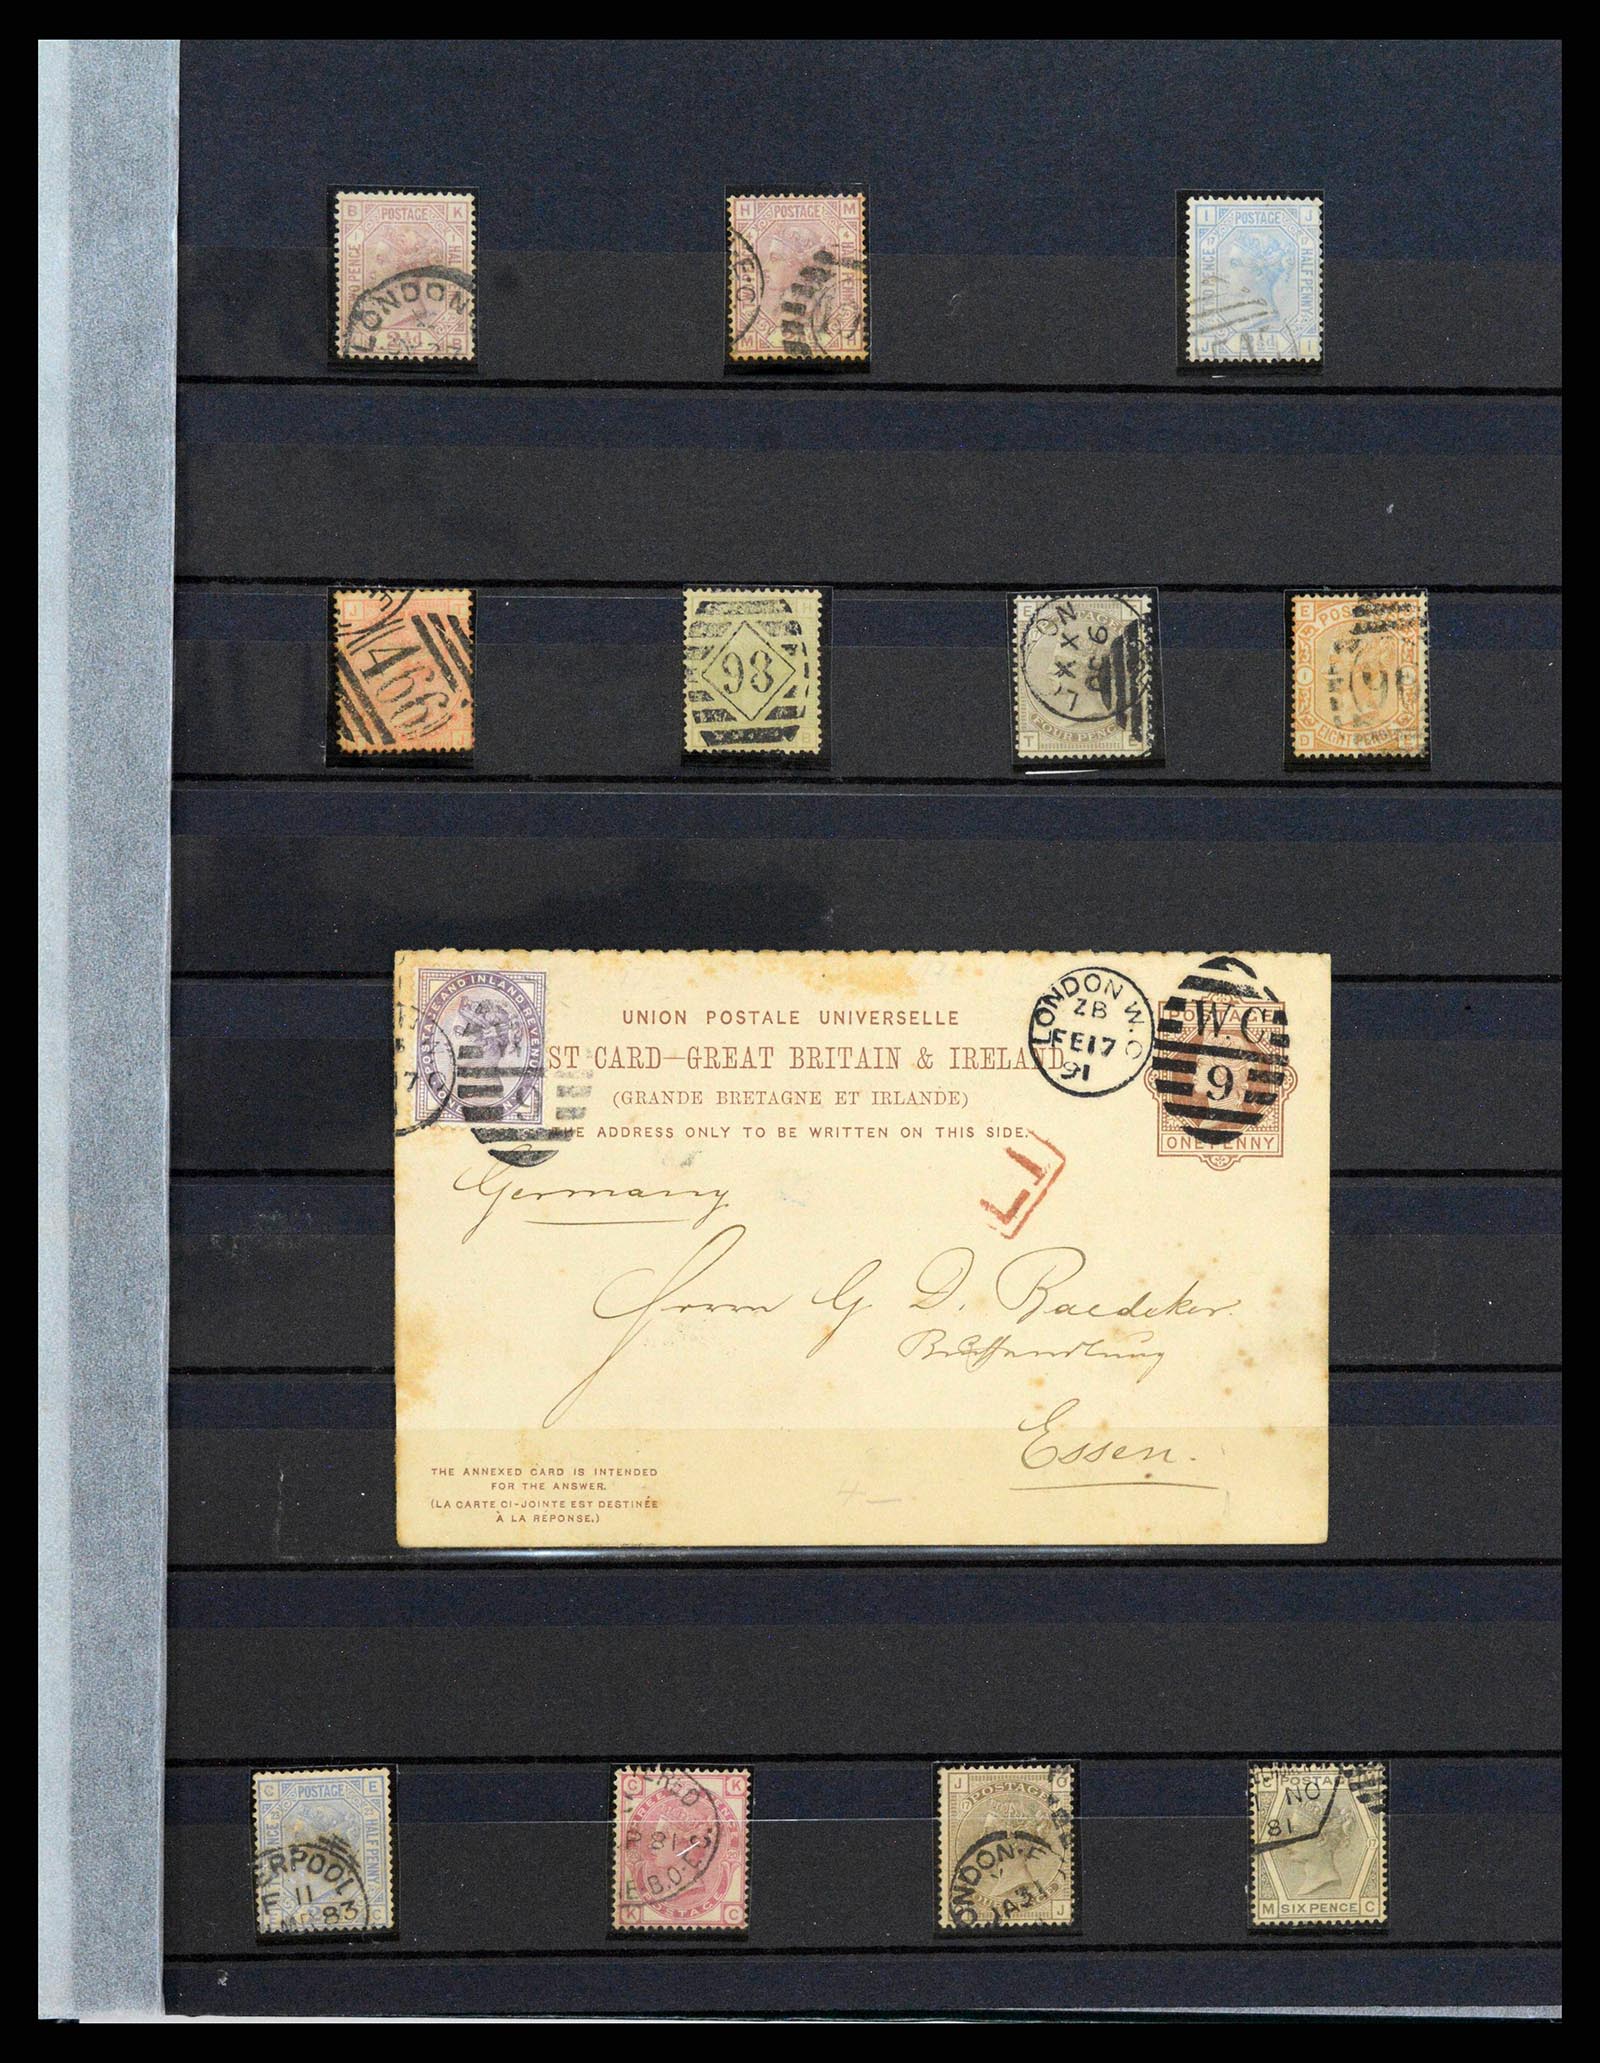 B POSTAGE K
HALF
2½d B
LONDON
H POSTAGE M
M H
I POSTAGE J
17 HALFPENNY
J I
J T
466
J
H
98
B
E
FOUR PENCE
T E
E POSTAGE
1
EIGHT PENCE
D E
POSTAGE AND INLAND REVENUE
UNION POSTALE UNIVERSELLE
ST CARD—GREAT BRITAIN & IRELAND
(GRANDE BRETAGNE ET IRLANDE)
THE ADDRESS ONLY TO BE WRITTEN ON THIS SIDE.
LONDON W.C
ZB
FE17
91
W.C.
9
POSTAGE
ONE PENNY
L1
Germany
Herrn G. D. Baedeker.
Buchhandlung
Essen.
THE ANNEXED CARD IS INTENDED
FOR THE ANSWER.
(LA CARTE CI-JOINTE EST DESTINÉE
À LA RÉPONSE.)
C POSTAGE E
HALFPENNY
C
11
83
C K
81
POSTAGE
K C
J POSTAGE O
LONDON·E
JA31
J
POSTAGE
NO
81
M SIX PENCE C